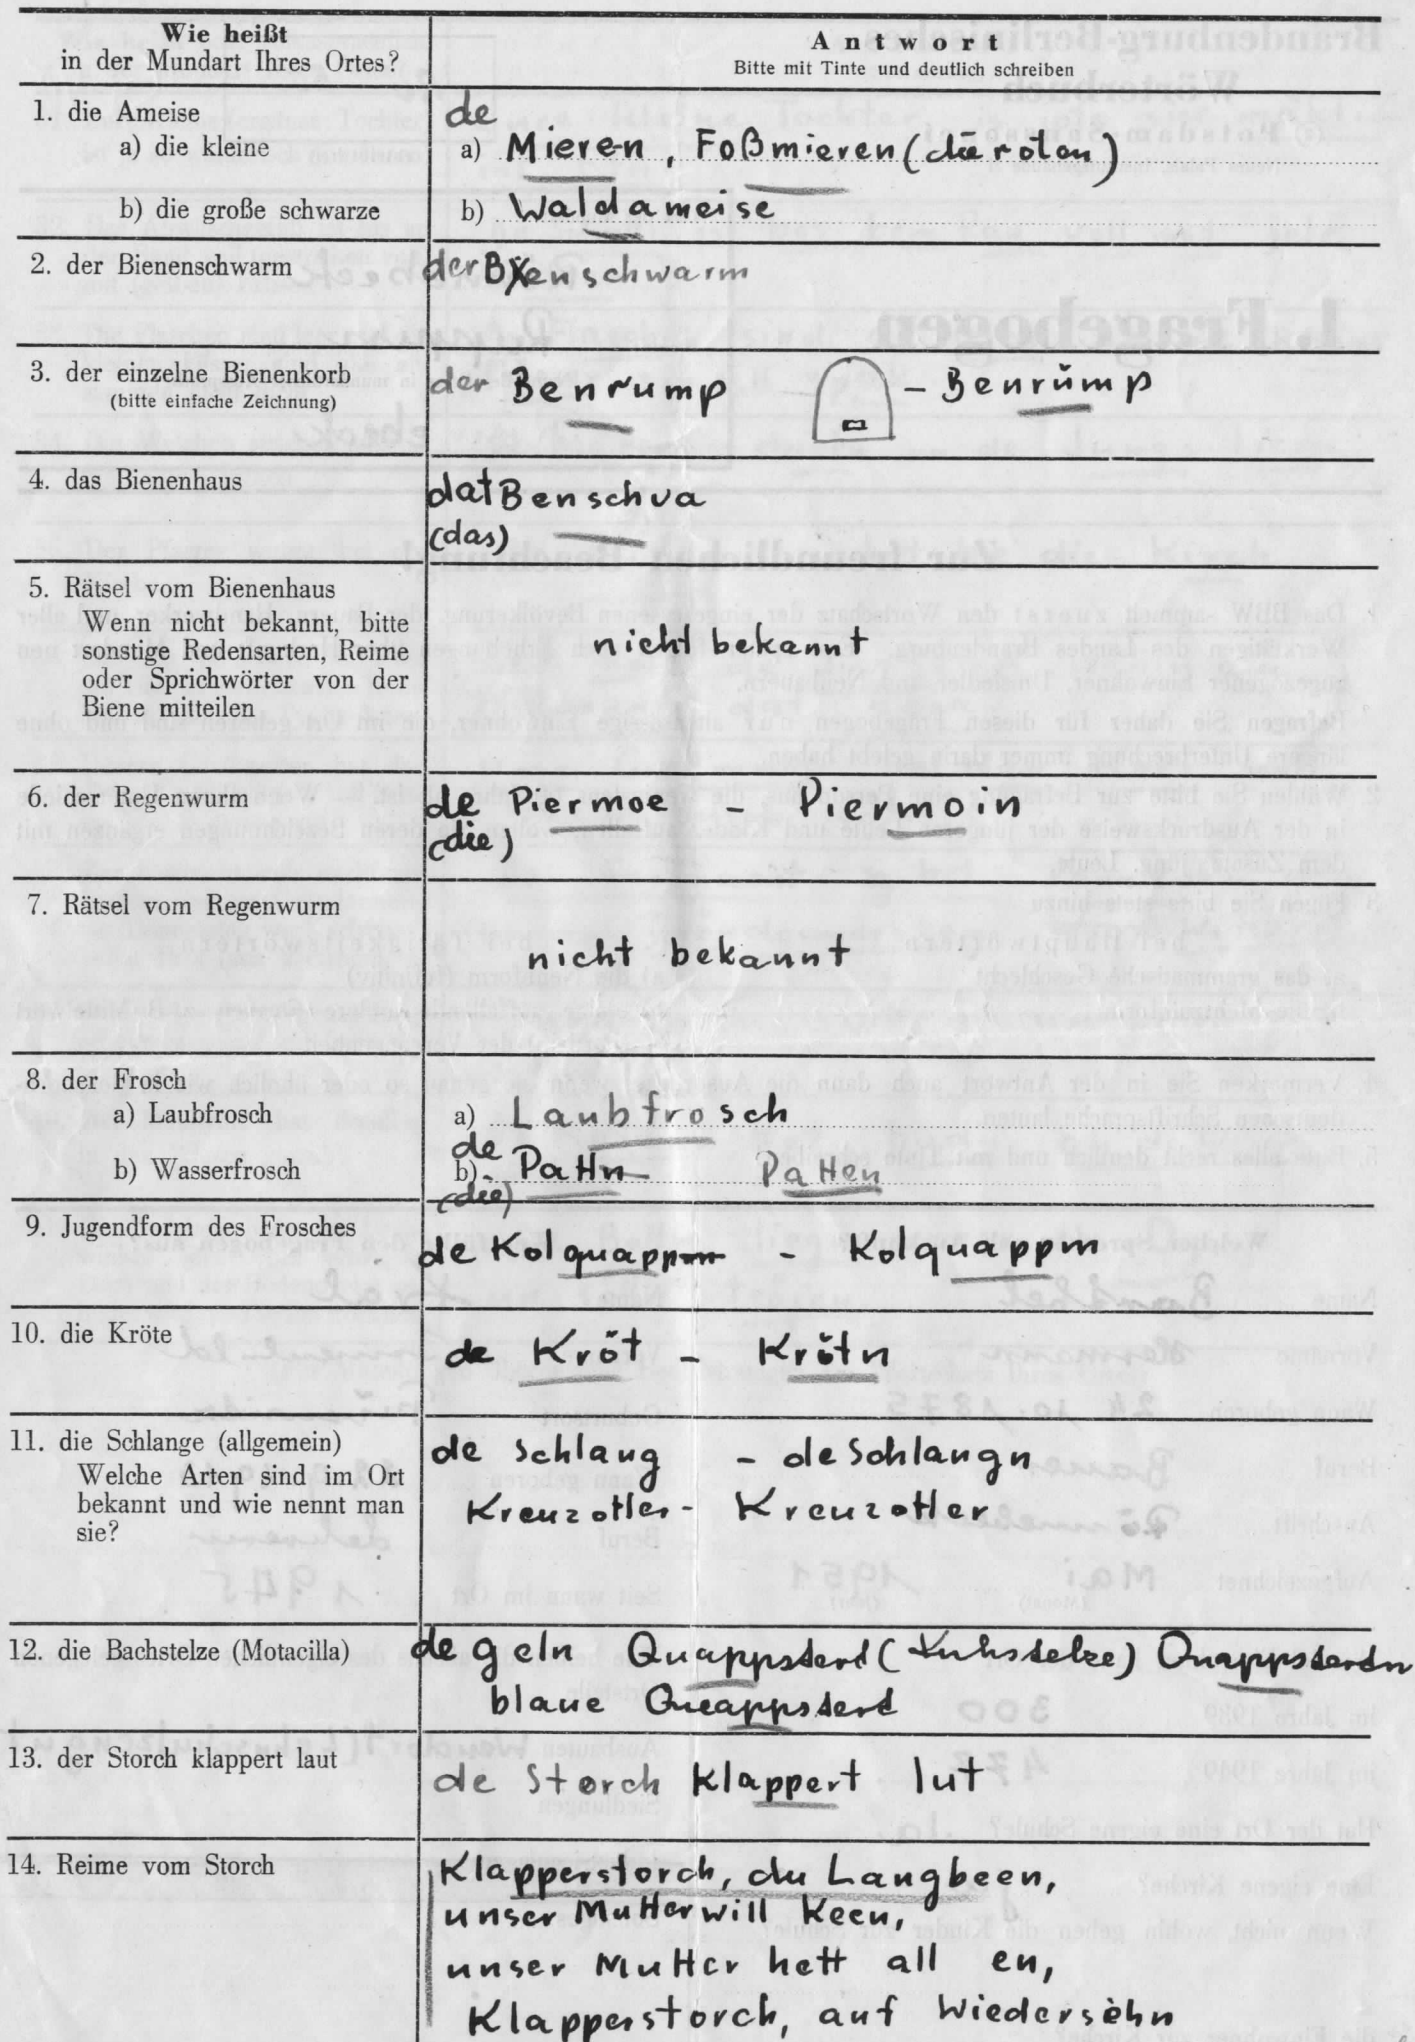 Wie heißt
in der Mundart Ihres Ortes?
Antwort
Bitte mit Tinte und deutlich schreiben
1. die Ameise
a) die kleine
de
a) Mieren, Foßmieren (die roten)
b) die große schwarze
b) Waldameise
2. der Bienenschwarm
der Benschwarm
3. der einzelne Bienenkorb
(bitte einfache Zeichnung)
der Benrump – Benrümp
4. das Bienenhaus
dat Benschua
(das)
5. Rätsel vom Bienenhaus
Wenn nicht bekannt, bitte
sonstige Redensarten, Reime
oder Sprichwörter von der
Biene mitteilen
nicht bekannt
6. der Regenwurm
de Piermoe – Piermoin
(die)
7. Rätsel vom Regenwurm
nicht bekannt
8. der Frosch
a) Laubfrosch
a) Laubfrosch
b) Wasserfrosch
de
b) Pattn Patten
(die)
9. Jugendform des Frosches
de Kolquapp – Kolquappm
10. die Kröte
de Kröt – Krötn
11. die Schlange (allgemein)
Welche Arten sind im Ort
bekannt und wie nennt man
sie?
de Schlang – de Schlangn
Kreuzotter – Kreuzotter
12. die Bachstelze (Motacilla)
de geln Quappstert (Kuhstelze) Quappstertn
blaue Queappstert
13. der Storch klappert laut
de Storch klappert lut
14. Reime vom Storch
Klapperstorch, du Langbeen,
unser Mutter will Keen,
unser Mutter hett all en,
Klapperstorch, auf Wiedersehn